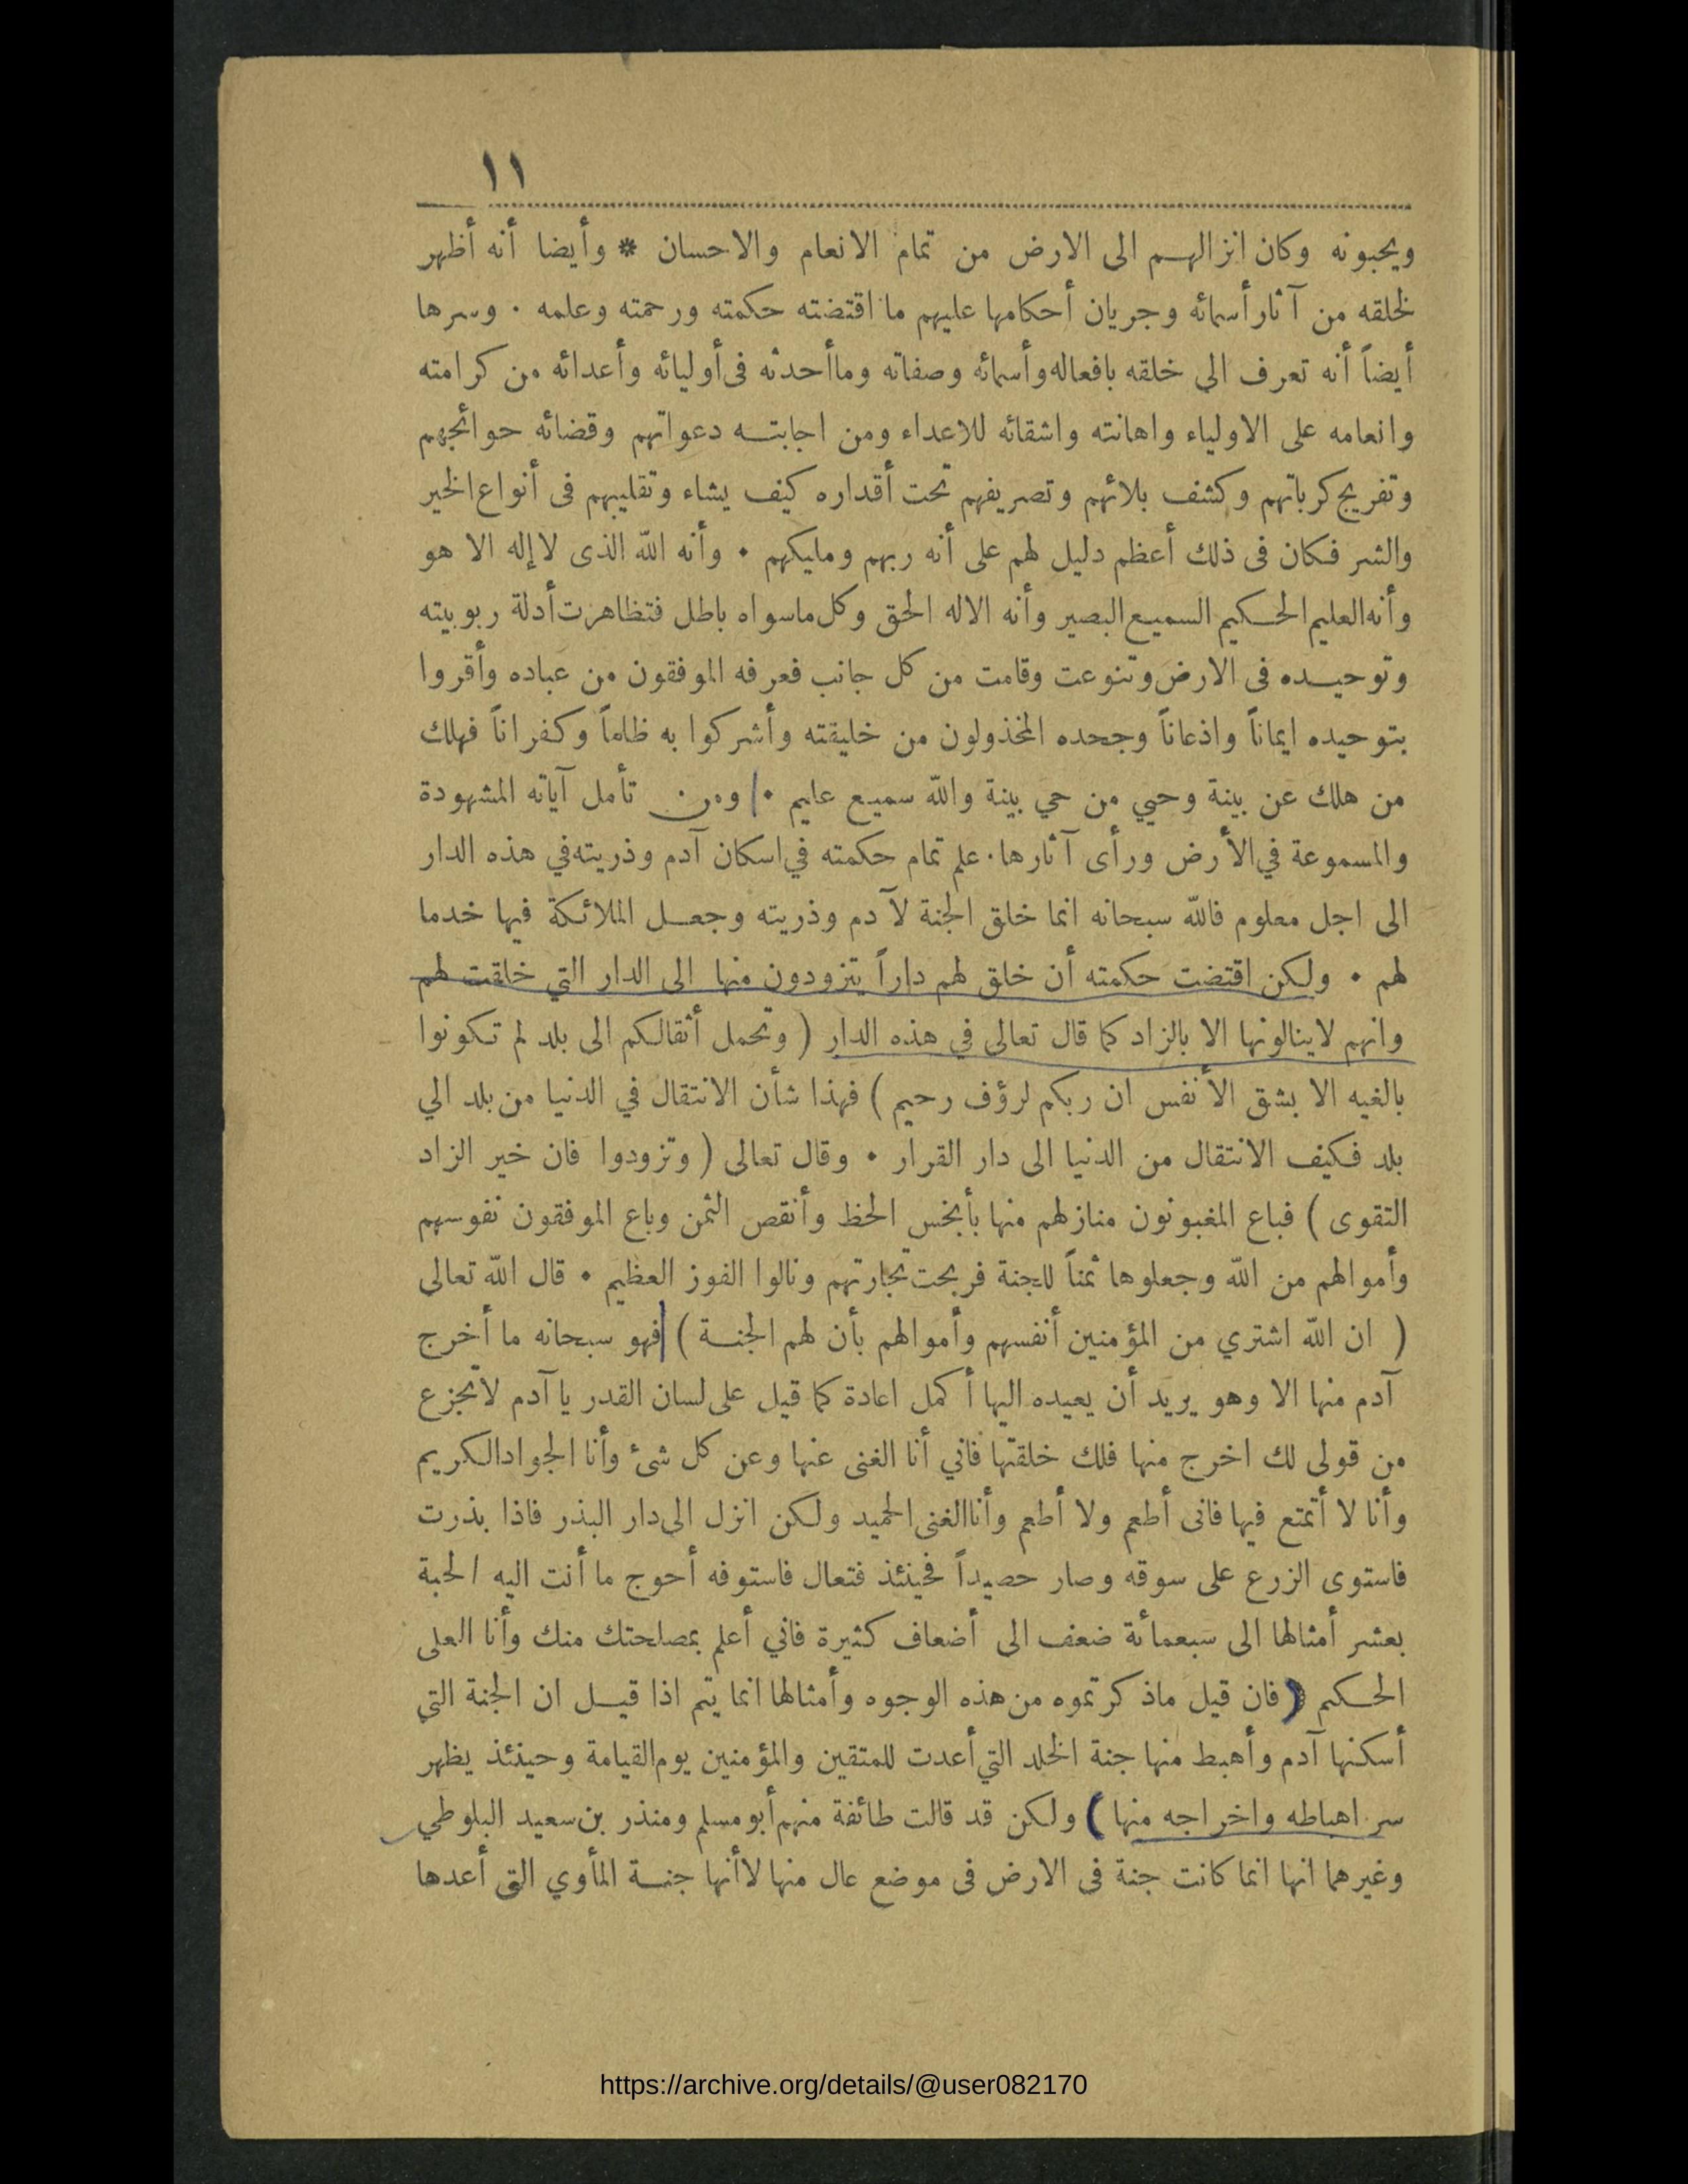 ١١
ويحبونه وكان انزالهم الى الارض من تمام الانعام والاحسان * وأيضا أنه أظهر
لخلقه من آثار أسمائه وجريان أحكامها عليهم ما اقتضته حكمته ورحمته وعلمه ٠ وسرها
أيضاً أنه تعرف الي خلقه بافعاله وأسمائه وصفاته وما أحدثه فى أوليائه وأعدائه من كرامته
وانعامه على الاولياء واهانته واشقائه للاعداء ومن اجابته دعواتهم وقضائه حوائجهم
وتفريج كرباتهم وكشف بلائهم وتصريفهم تحت أقداره كيف يشاء وتقليبهم فى أنواع الخير
والشر فكان فى ذلك أعظم دليل لهم على أنه ربهم ومليكهم ٠ وأنه الله الذى لا إله الا هو
وأنه العليم الحكيم السميع البصير وأنه الاله الحق وكل ماسواه باطل فتظاهرت أدلة ربوبيته
وتوحيده فى الارض وتنوعت وقامت من كل جانب فعرفه الموفقون من عباده وأقروا
بتوحيده ايماناً واذعاناً وجحده المخذولون من خليقته وأشركوا به ظلماً وكفراناً فهلك
من هلك عن بينة وحيي من حي بينة والله سميع عليم ٠ ومن تأمل آياته المشهودة
والمسموعة في الأرض ورأى آثارها ٠ علم تمام حكمته في اسكان آدم وذريته في هذه الدار
الى اجل معلوم فالله سبحانه انما خلق الجنة لآدم وذريته وجعل الملائكة فيها خدما
لهم ٠ ولكن اقتضت حكمته أن خلق لهم داراً يتزودون منها الى الدار التي خلقت لهم
وانهم لاينالونها الا بالزاد كما قال تعالى في هذه الدار ( وتحمل أثقالكم الى بلد لم تكونوا
بالغيه الا بشق الأنفس ان ربكم لرؤف رحيم ) فهذا شأن الانتقال في الدنيا من بلد الي
بلد فكيف الانتقال من الدنيا الى دار القرار ٠ وقال تعالى ( وتزودوا فان خير الزاد
التقوى ) فباع المغبونون منازلهم منها بأبخس الحظ وأنقص الثمن وباع الموفقون نفوسهم
وأموالهم من الله وجعلوها ثمناً للجنة فربحت تجارتهم ونالوا الفوز العظيم ٠ قال الله تعالى
( ان الله اشتري من المؤمنين أنفسهم وأموالهم بأن لهم الجنة ) فهو سبحانه ما أخرج
آدم منها الا وهو يريد أن يعيده اليها أكمل اعادة كما قيل على لسان القدر يا آدم لاتجزع
من قولى لك اخرج منها فلك خلقتها فاني أنا الغنى عنها وعن كل شئ وأنا الجواد الكريم
وأنا لا أتمتع فيها فانى أطعم ولا أطعم وأنا الغنى الحميد ولكن انزل الى دار البذر فاذا بذرت
فاستوى الزرع على سوقه وصار حصيداً فحينئذ فتعال فاستوفه أحوج ما أنت اليه الحبة
بعشر أمثالها الى سبعمائة ضعف الى أضعاف كثيرة فاني أعلم بمصلحتك منك وأنا العلى
الحكيم ( فان قيل ماذكرتموه من هذه الوجوه وأمثالها انما يتم اذا قيل ان الجنة التي
أسكنها آدم وأهبط منها جنة الخلد التي أعدت للمتقين والمؤمنين يوم القيامة وحينئذ يظهر
سر اهباطه واخراجه منها ) ولكن قد قالت طائفة منهم أبو مسلم ومنذر بن سعيد البلوطي
وغيرهما انها انما كانت جنة فى الارض فى موضع عال منها لا أنها جنة المأوي التي أعدها
https://archive.org/details/@user082170